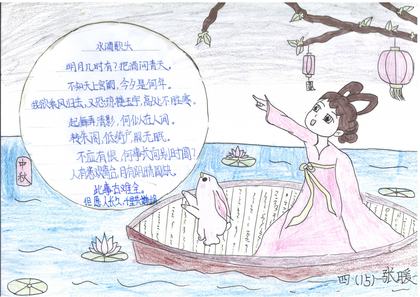 水调歌头
明月几时有?把酒问青天。
不知天上宫阙,今夕是何年。
我欲乘风归去,又恐琼楼玉宇,高处不胜寒。
起舞弄清影,何似在人间。
转朱阁,低绮户,照无眠。
不应有恨,何事长向别时圆?
人有悲欢离合,月有阴晴圆缺,
此事古难全。
但愿人长久,千里共婵娟。
中秋
四(15)张暖